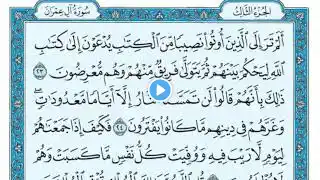 الجزء الثالث
سورة آل عمران
ألم تر إلى الذين أوتوا نصيبا من الكتب يدعون إلى كتب
الله ليحكم بينهم ثم يتولى فريق منهم وهم معرضون ٢٣
ذلك بأنهم قالوا لن تمسنا النار إلا أياما معدودات
وغرهم في دينهم ما كانوا يفترون ٢٤ فكيف إذا جمعنهم
ليوم لا ريب فيه ووفيت كل نفس ما كسبت وهم